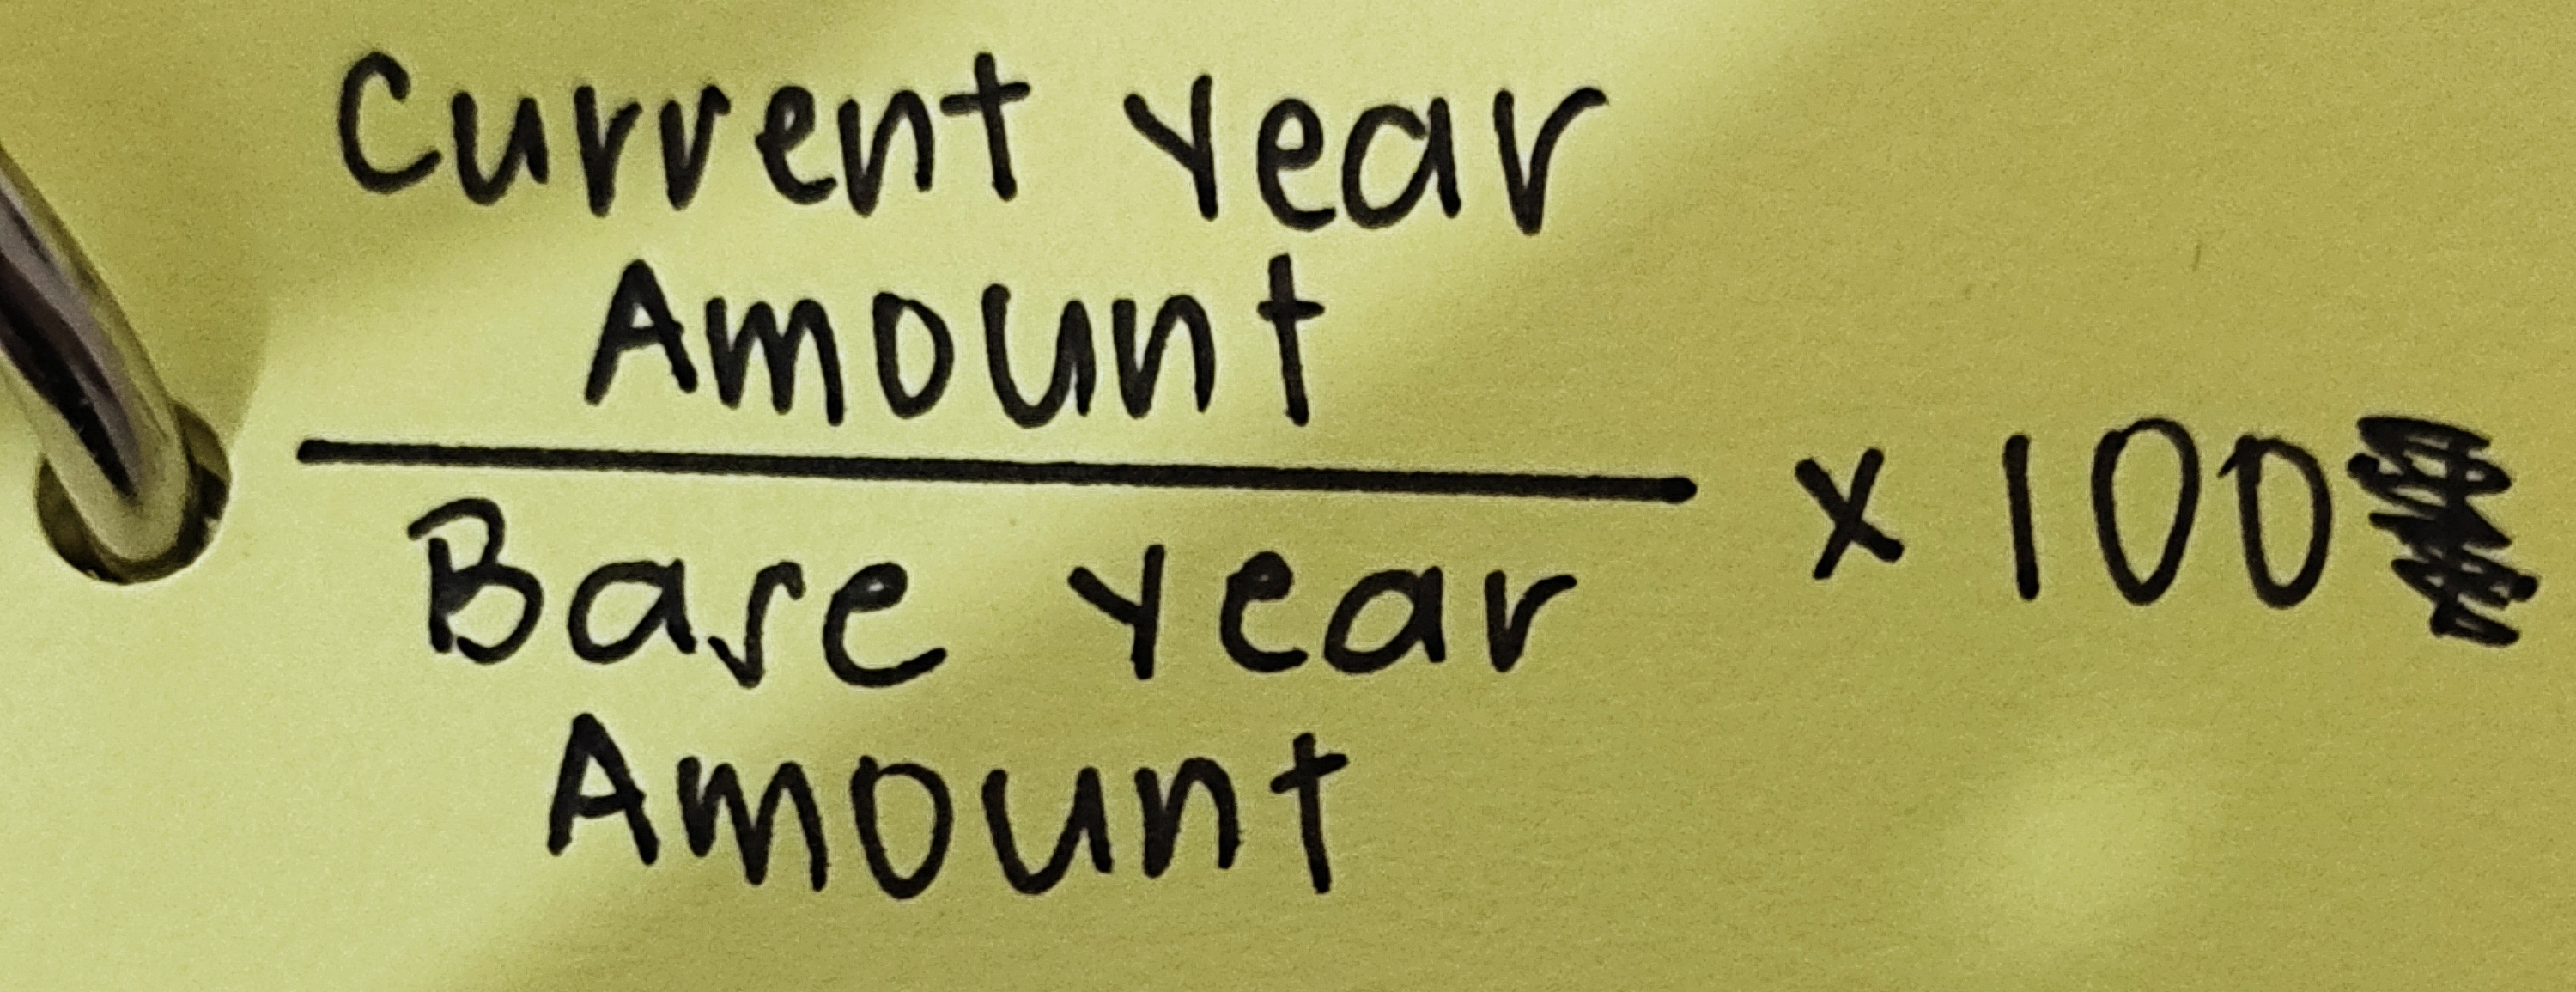 Current year
Amount
x 100
Base year
Amount